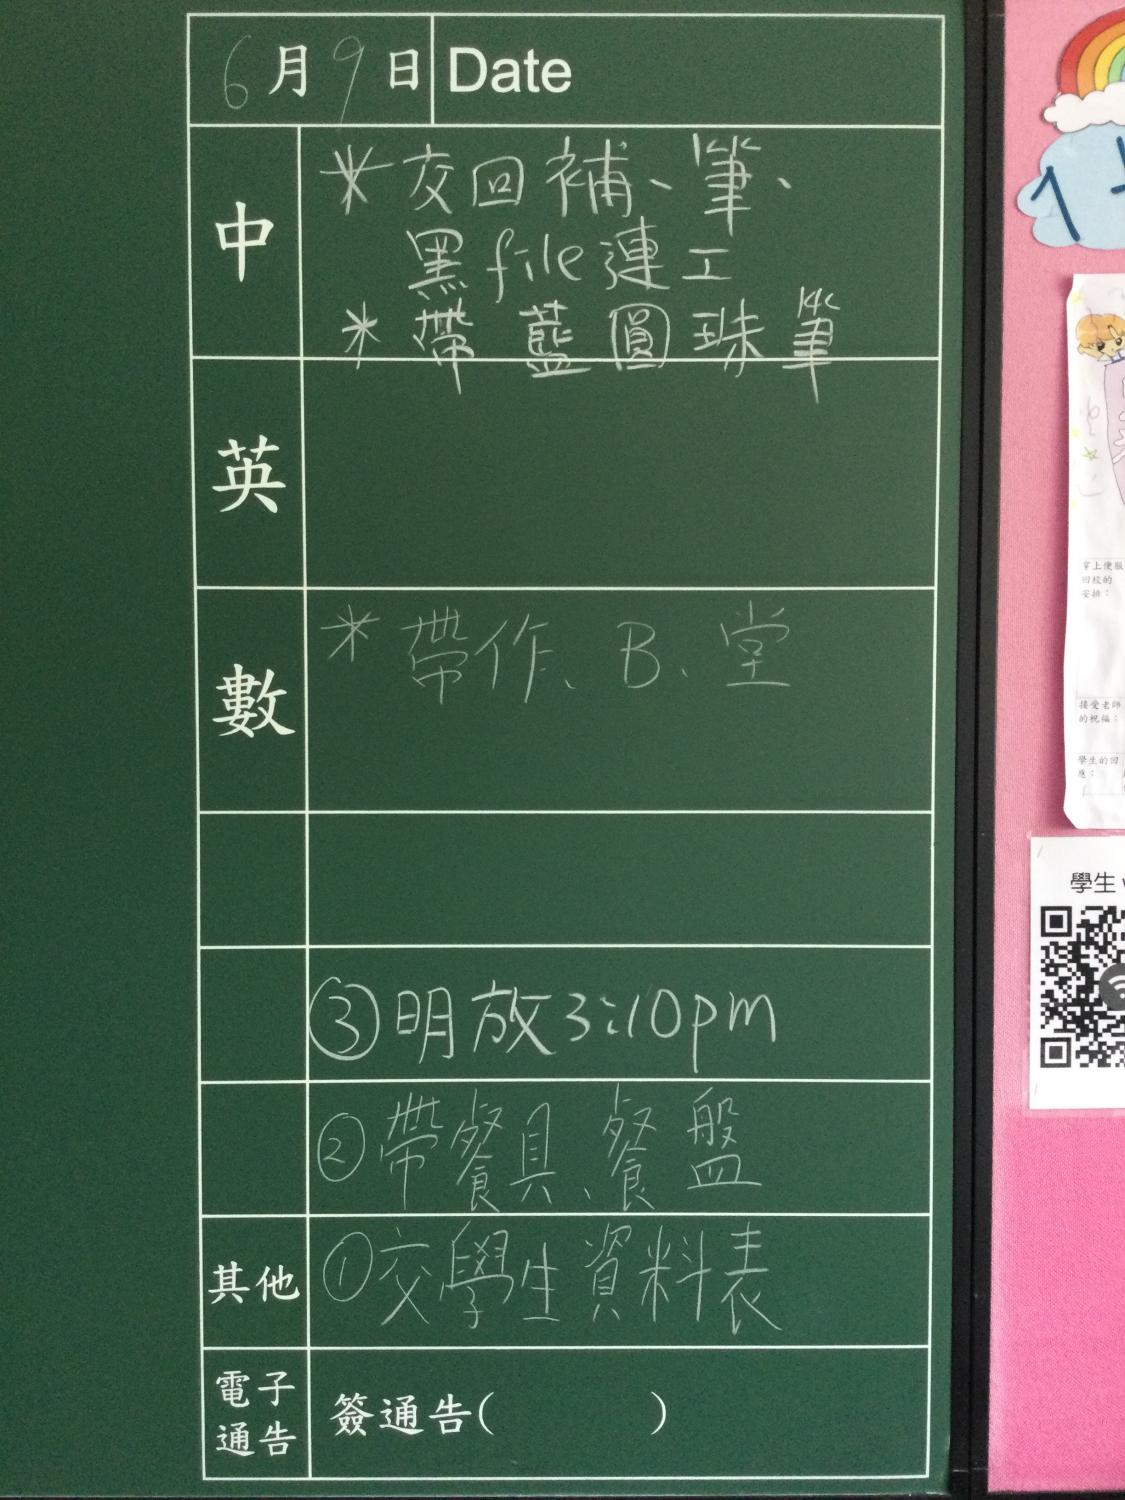 6月9日 Date
中
*交回補、筆、
黑file連工
*帶藍圓珠筆
英
數
*帶作、B、堂
③明放3:10pm
②帶餐具、餐盤
其他
①交學生資料表
電子
通告
簽通告( )
掌上便服
回校的
安排：
接受老師
的祝福：
學生的回
應：
學生